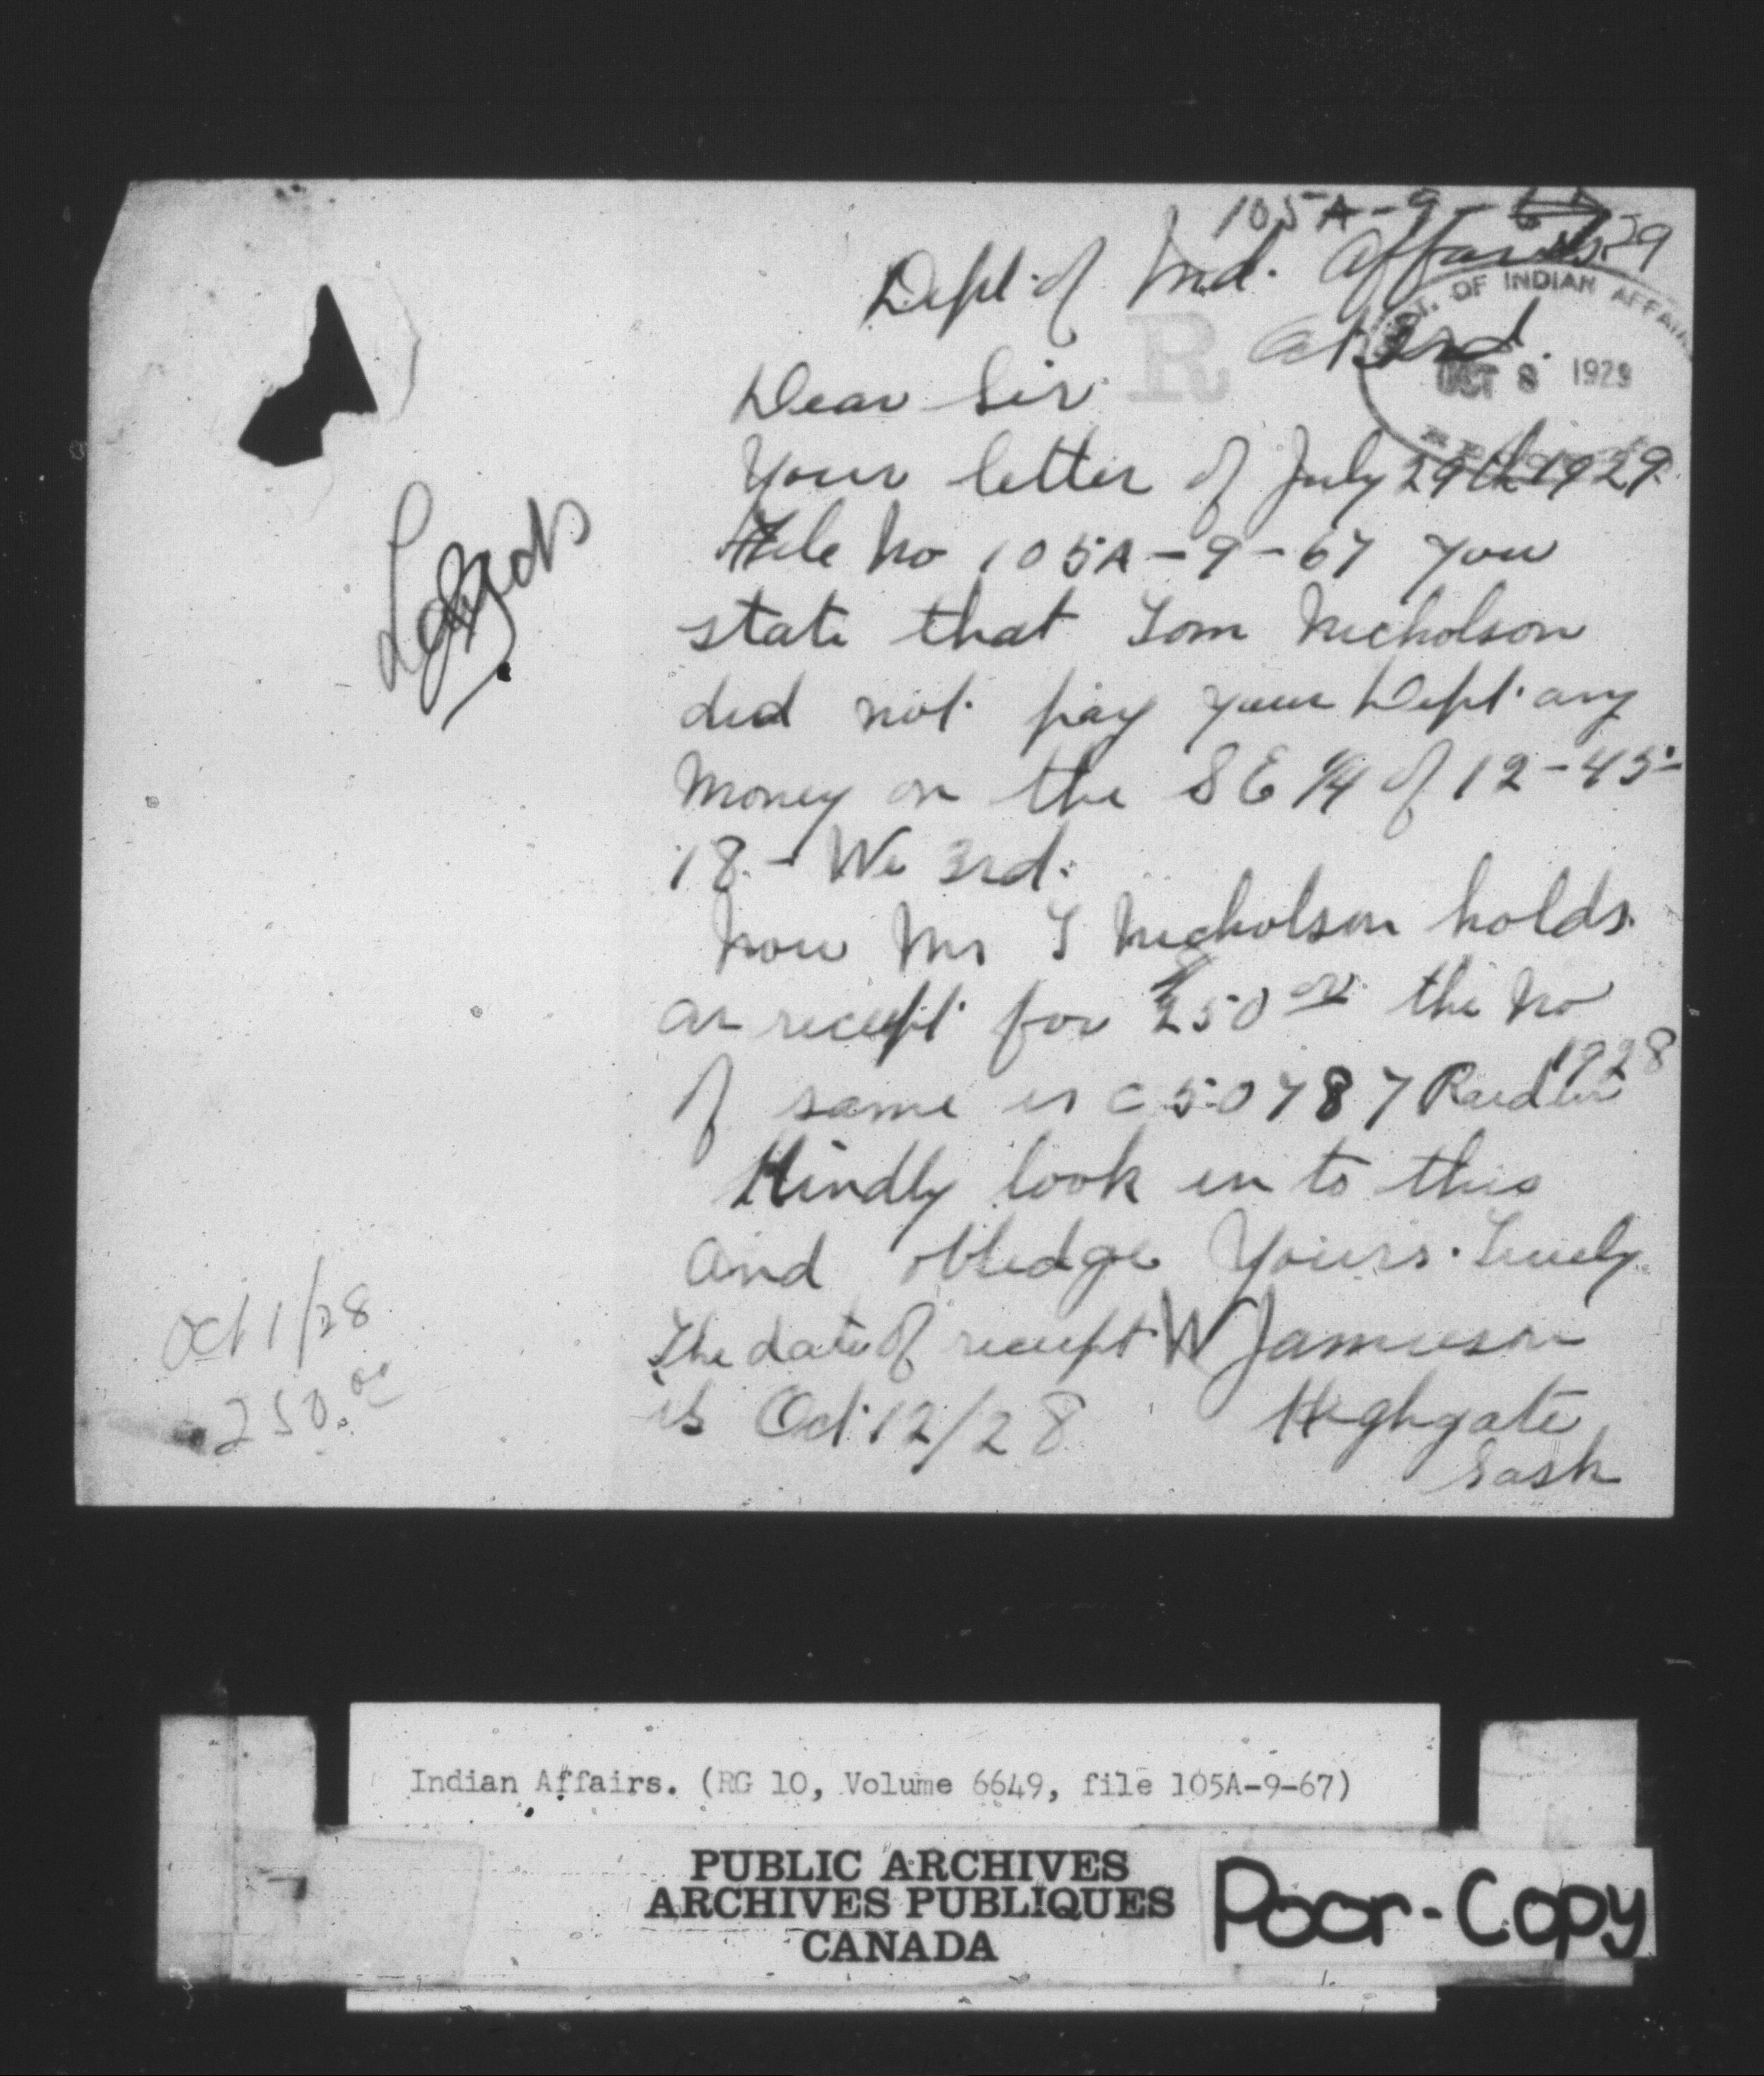 105A-9-67
Dept. of Ind. Affairs. 29
DEPT. OF INDIAN AFFAIRS
R
OCT 8 1929
Dear Sir
Your letter of July 29th 1929.
File No 105A-9-67 you
state that Tom Nicholson
did not pay your Dept. any
money on the S E 1/4 of 12-45-
18-We 3rd.
Now Mr T Nicholson holds
a receipt for $250 00 the No
1928
of same is C 50787
Kindly look in to this
and obledge Yours. Truely
The date of receipt W Jamieson
is Oct 12/28 Highgate
Sask
Lands
Oct 1/28
250.00
Indian Affairs. (RG 10, Volume 6649, file 105A-9-67)
PUBLIC ARCHIVES
ARCHIVES PUBLIQUES
CANADA
Poor-Copy